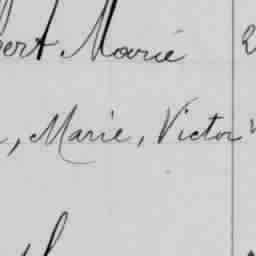 bert Marie 2
, Marie, Victor